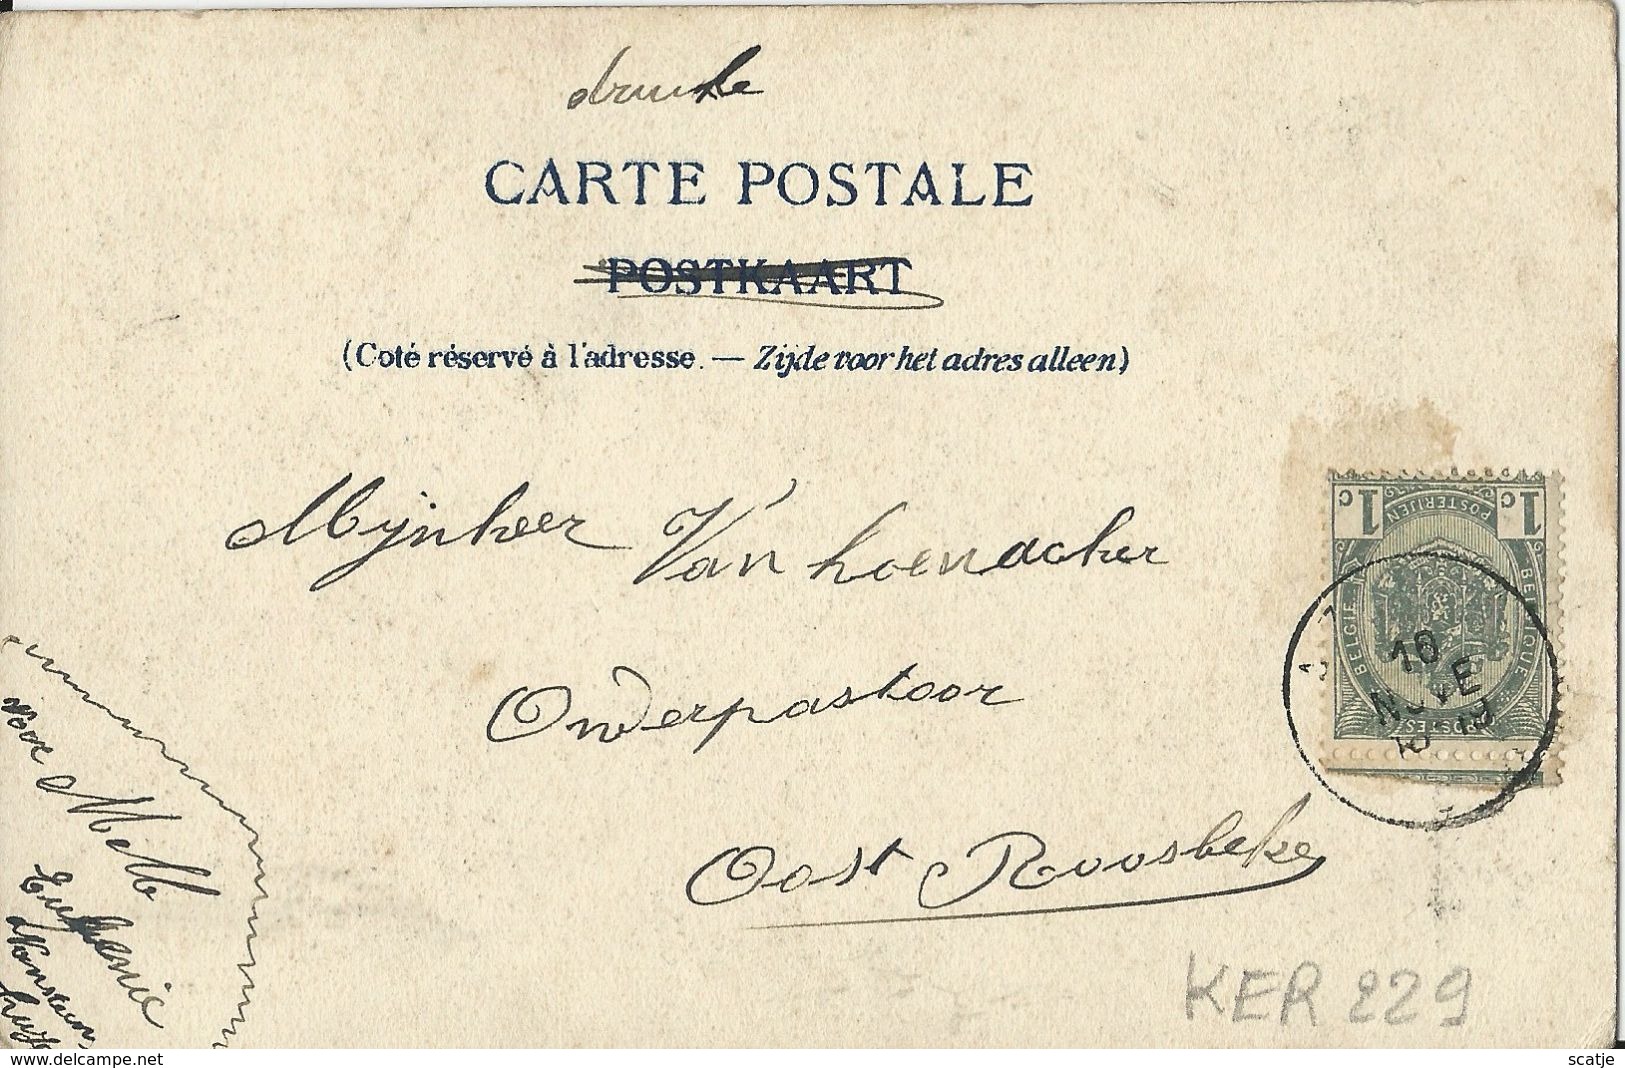 drukke
CARTE POSTALE
POSTKAART
(Coté réservé à l'adresse. — Zijde voor het adres alleen)
Mijnheer Van hoenacker
Onderpastoor
Oost Roosbeke
1c POSTERIJEN 1c
BELGIE BELGIQUE
POSTES
16
NOVE
Voor M M
KER 229
delcampe.net
scatje